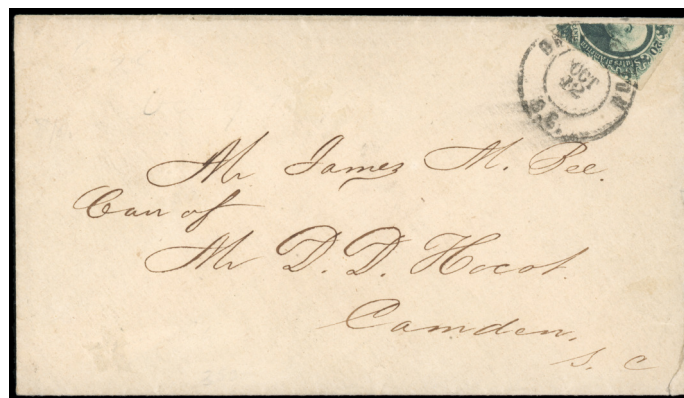 OCT
12
S.C.
Mr James M. Bee.
Care of
Mr D. D. Hocot.
Camden,
S. C